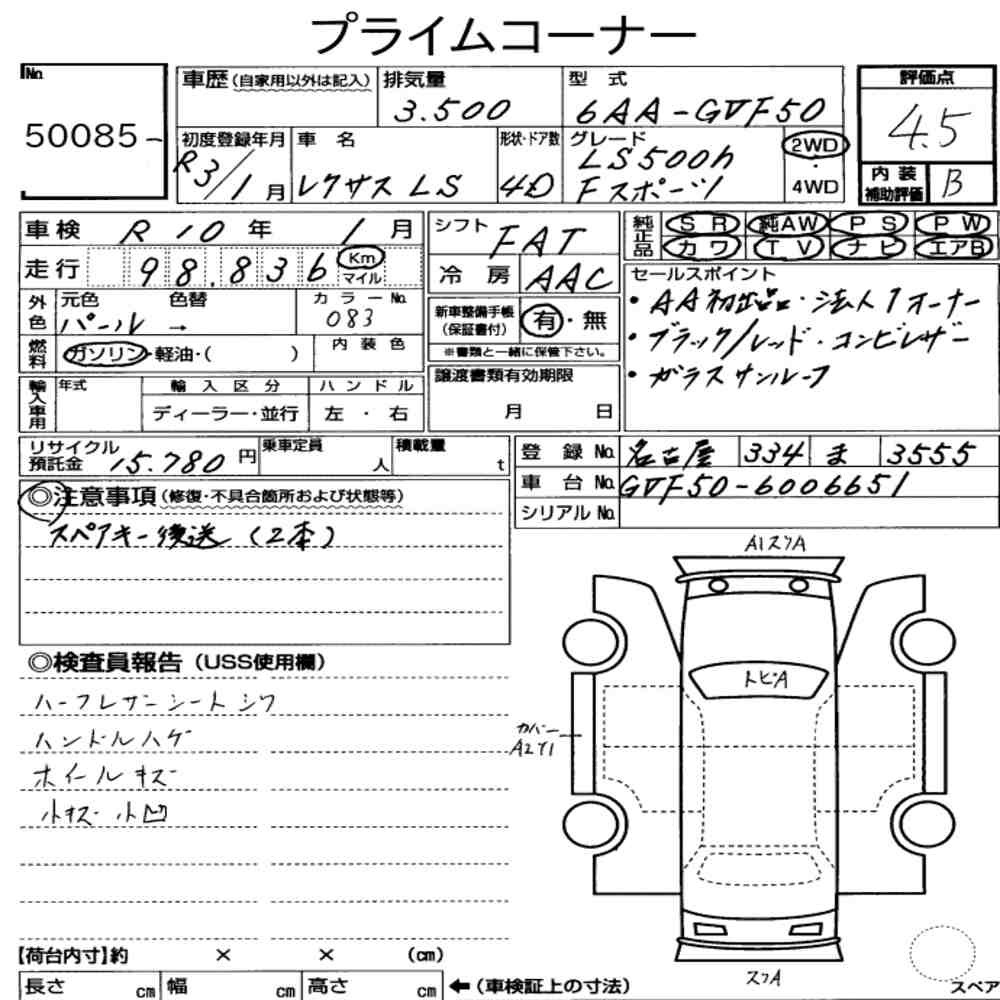 プライムコーナー
No.
50085-
車歴(自家用以外は記入) 排気量 型 式 評価点
3.500 6AA-GVF50 4.5
初度登録年月 車 名 形状・ドア数 グレード 2WD・4WD
R3/1月 レクサス LS 4D LS500h Fスポーツ
内装補助評価 B
車検 R 10 年 1 月 シフト FAT 純正品 SR 純AW PS PW
走行 98,836 Km マイル 冷 房 AAC カワ TV ナビ エアB
外色 元色 色替 カラーNo. 新車整備手帳(保証書付) 有・無
パール → 083
※書類と一緒に保管下さい。
燃料 ガソリン・軽油・( ) 内装色
輸入車用 年式 輸入区分 ハンドル
ディーラー・並行 左・右
譲渡書類有効期限
月 日
セールスポイント
・AA初出品・法人1オーナー
・ブラック/レッド・コンビレザー
・ガラスサンルーフ
リサイクル預託金 15.780 円 乗車定員 人 積載量 t
登 録 No. 名古屋 334 ま 3555
車 台 No. GVF50-6006651
シリアル No.
◎注意事項(修復・不具合箇所および状態等)
スペアキー後送(2本)
◎検査員報告(USS使用欄)
ハーフレザーシートシワ
ハンドルハゲ
ホイールキズ
小キズ 小凹
A1スリA
トビA
カバー
スリA
【荷台内寸】約 × × (cm)
長さ cm 幅 cm 高さ cm ←(車検証上の寸法)
スペア